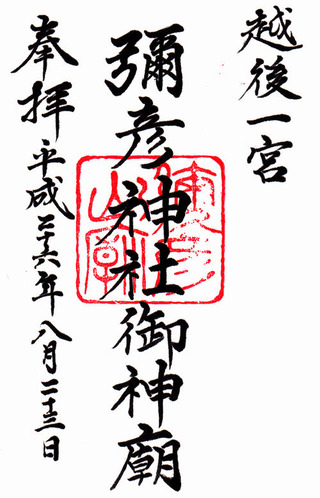 越後一宮
彌彦神社御神廟
奉拝 平成二十六年八月二十三日